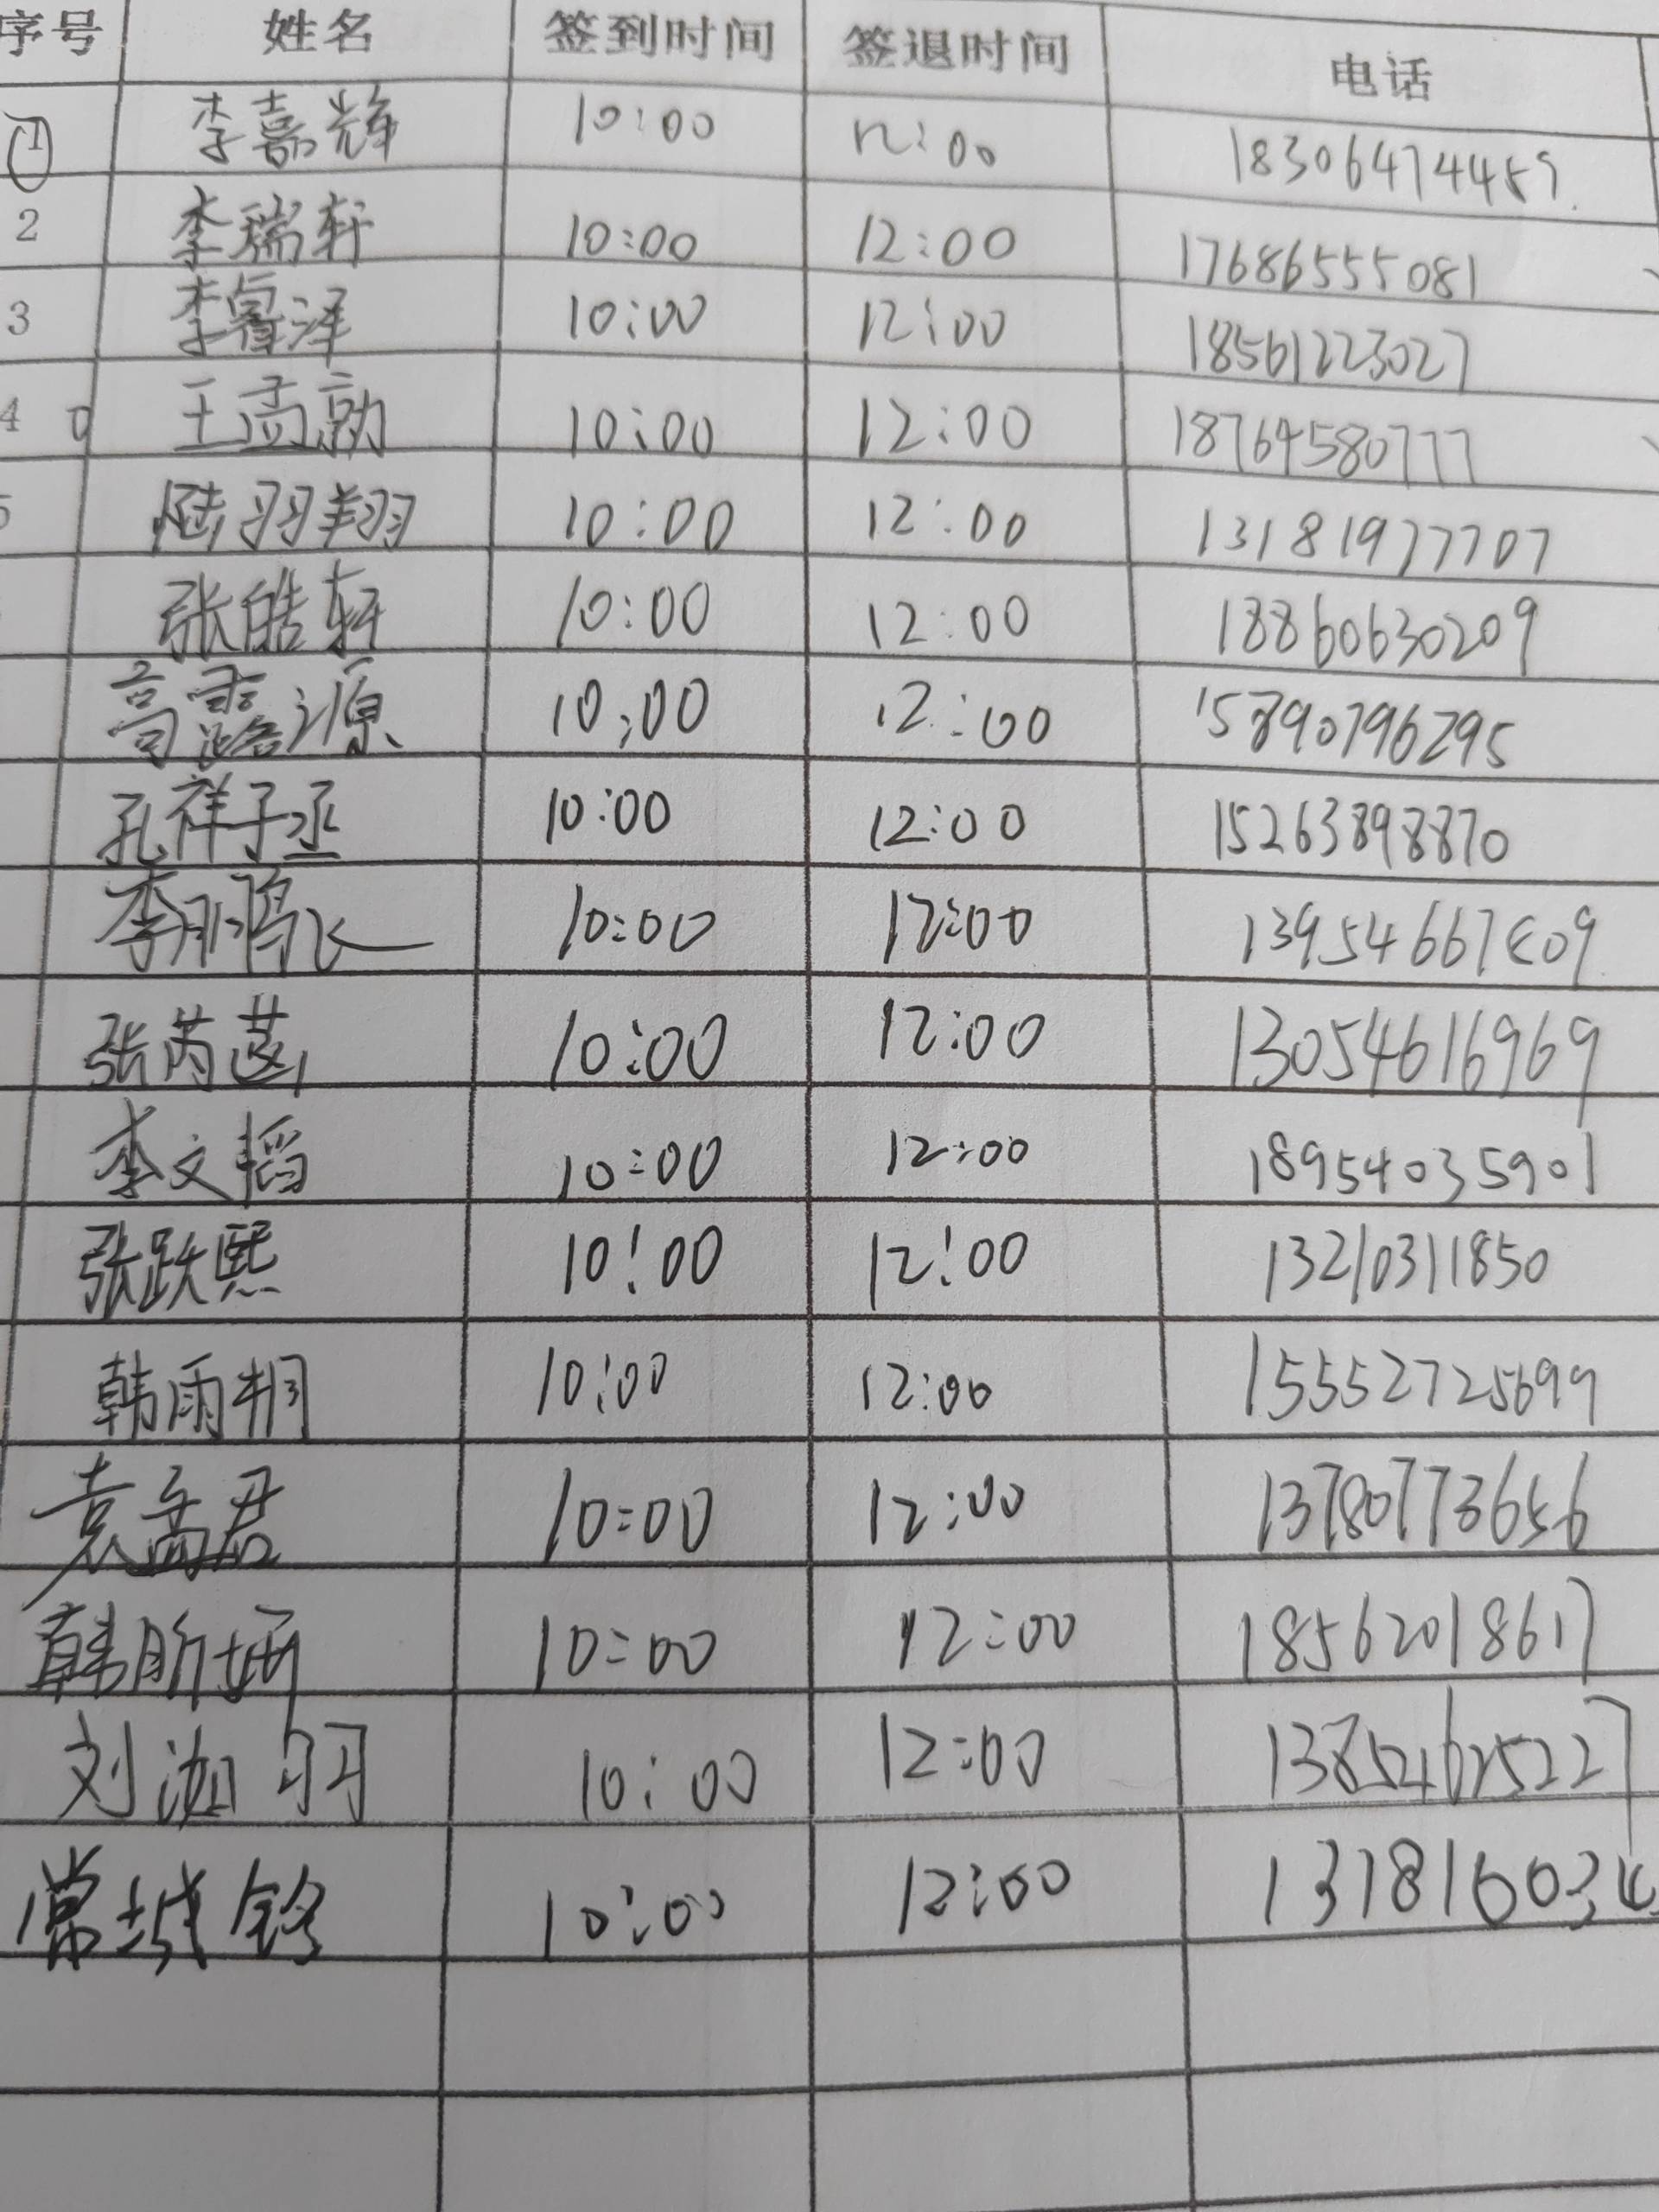 序号 姓名 签到时间 签退时间 电话
1 李嘉辉 10:00 12:00 18306474459
2 李瑞轩 10:00 12:00 17686555081
3 李睿泽 10:00 12:00 18561223027
4 王孟勋 10:00 12:00 18764580777
5 陆羽翔 10:00 12:00 13181977707
张皓轩 10:00 12:00 18860630209
高露源 10:00 12:00 15890796295
孔祥子丞 10:00 12:00 15263898870
10:00 12:00
张芮菡 10:00 12:00 13054616969
李文韬 10:00 12:00 18954035901
张跃熙 10:00 12:00 13210311850
韩雨桐 10:00 12:00 15552725699
袁孟君 10:00 12:00 13780773656
韩昕妍 10:00 12:00 18562018617
刘泇羽 10:00 12:00 13854625227
常城铭 10:00 12:00 131816034